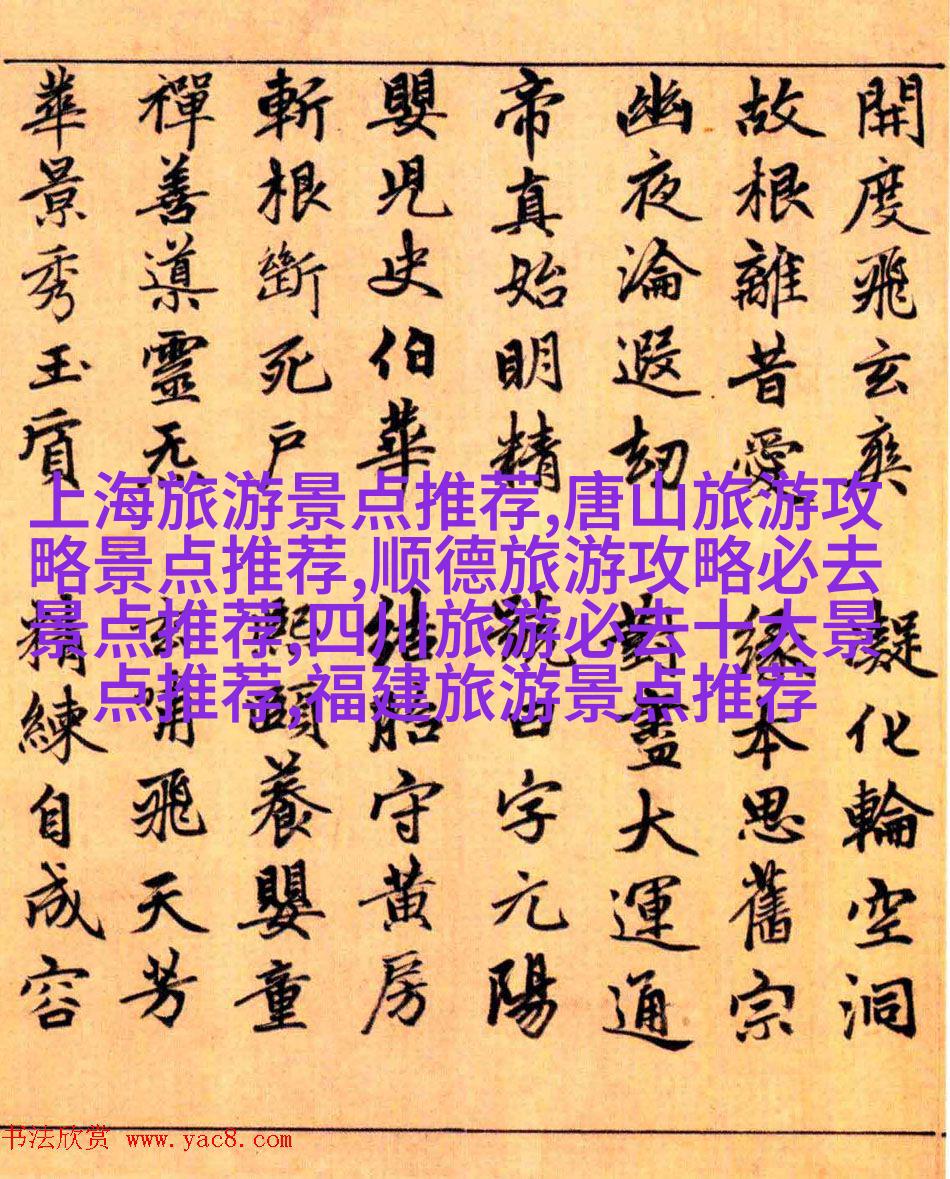 開度飛玄爽 凝化輪空洞
故根離昔愛 緣本思舊宗
幽夜淪遐劫 對盡大運通
帝真始明精 號曰字元陽
嬰兒史伯華 胎守黃房
斬根斷死戶 熙頤養嬰童
禪善 靈无 嘯飛天芳
華景秀玉質 精練自成容
上海旅游景点推荐,唐山旅游攻
略景点推荐,顺德旅游攻略必去
景点推荐,四川旅游必去十大景
点推荐,福建旅游景点推荐
书法欣赏 www.yac8.com